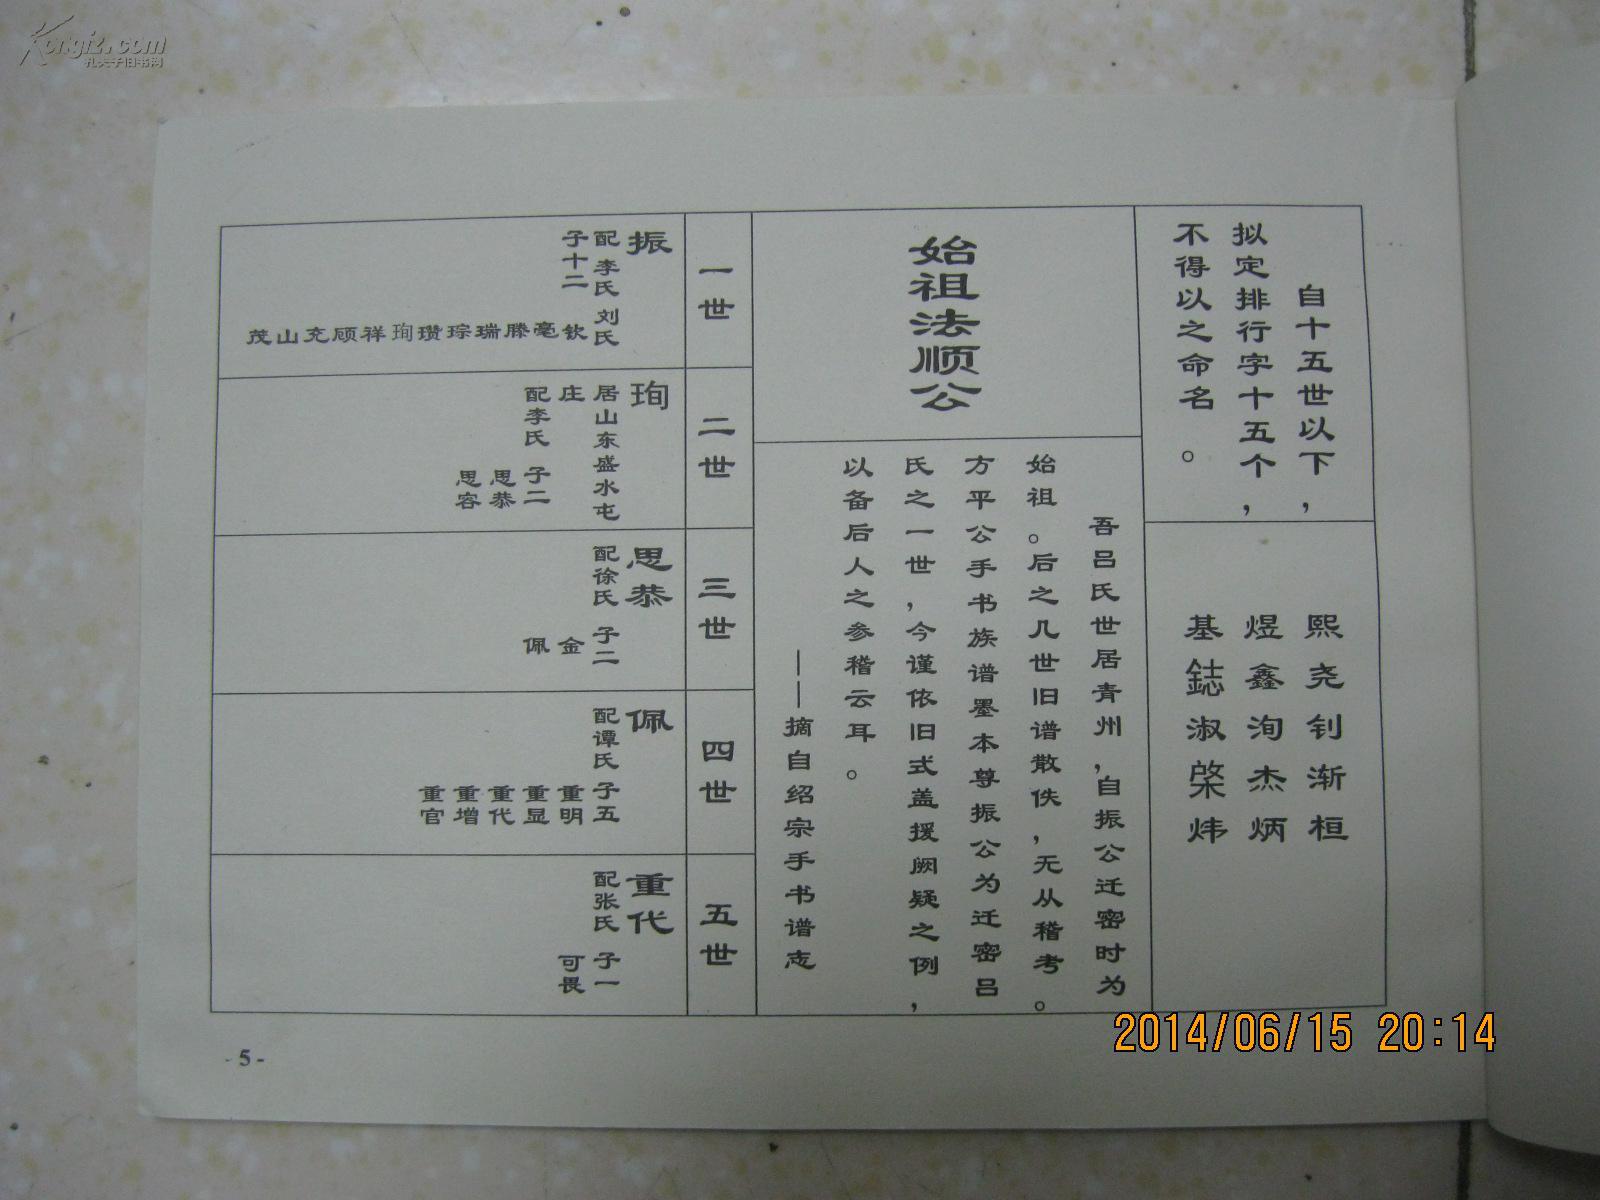 自十五世以下，
拟定排行字十五个，
不得以之命名。
熙尧钊渐桓
煜鑫洵杰炳
基鋕淑棨炜
始祖法顺公
吾吕氏世居青州，自振公迁密时为
始祖。后之几世旧谱散佚，无从稽考。
方平公手书族谱墨本尊振公为迁密吕
氏之一世，今谨依旧式盖援阙疑之例，
以备后人之参稽云耳。
——摘自绍宗手书谱志
一世
振
配李氏 刘氏
子十二
钦亳滕瑞琮瓒珣祥顾充山茂
二世
珣
居山东盛水屯
庄
配李氏 子二
思恭
思容
三世
思恭
配徐氏 子二
金
佩
四世
佩
配谭氏 子五
重明
重显
重代
重增
重官
五世
重代
配张氏 子一
可畏
- 5 -
2014/06/15 20:14
Kongfz.com
孔夫子旧书网